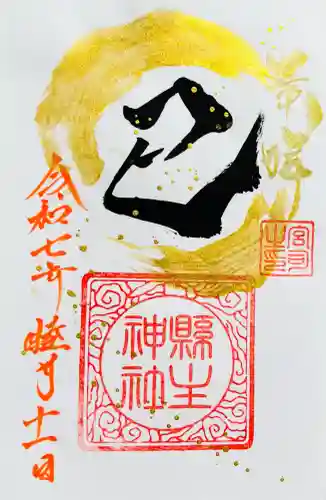 巳
宮司
之印
縣主
神社
令和七年睦月十一日